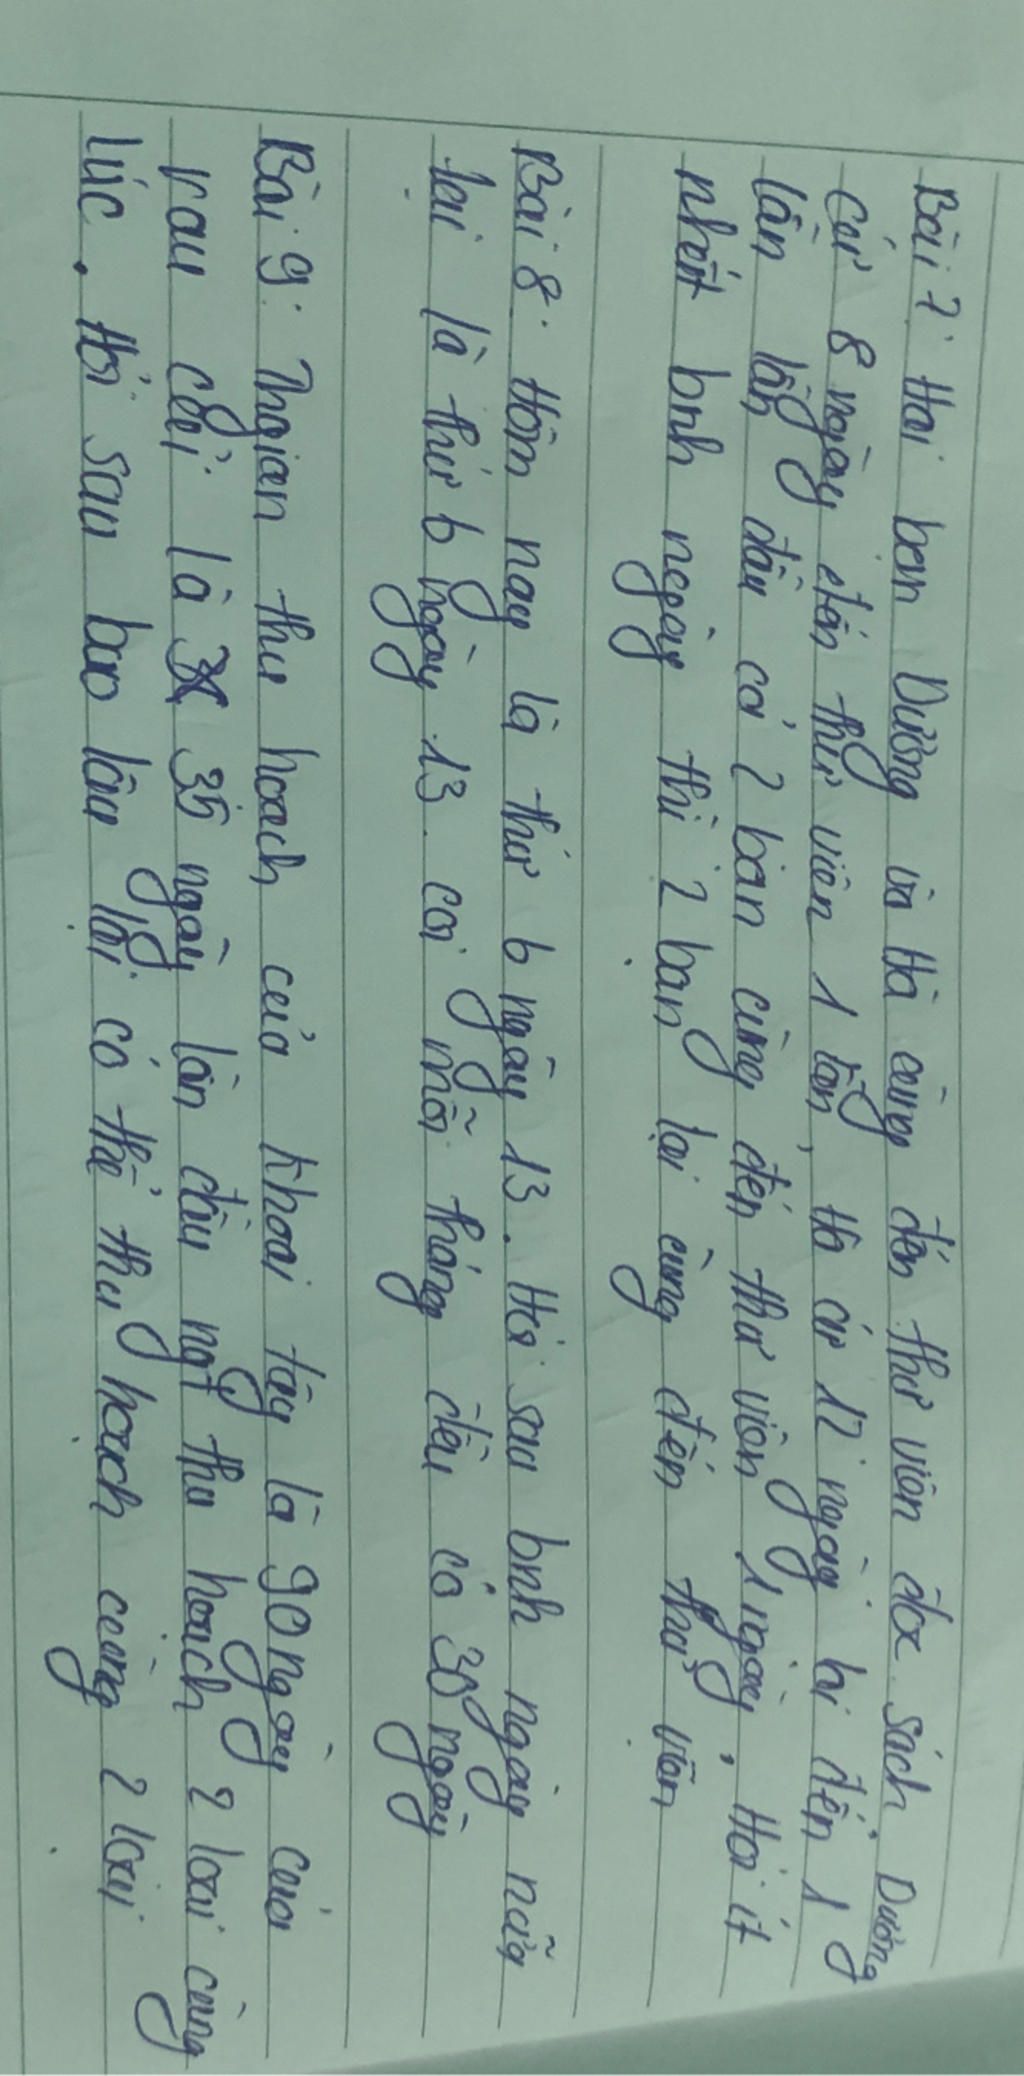 Bài 7: Hai bạn Dương và Hà cùng đến thư viện đọc sách Dương
cứ 8 ngày đến thư viện 1 lần, Hà cứ 12 ngày lại đến 1
lần lần đầu cả 2 bạn cùng đến thư viện 1 ngày, Hỏi ít
nhất bnh ngày thì 2 bạn lại cùng đến thư viện
Bài 8: Hôm nay là thứ 6 ngày 13. Hỏi sau bnh ngày nữa
lại là thứ 6 ngày 13. coi mỗi tháng đều có 30 ngày
Bài 9: Thgian thu hoạch của khoai tây là 90 ngày của
rau cải là 35 ngày lần đầu ngt thu hoạch 2 loại cùng
lúc. Hỏi sau bao lâu lại có thể thu hoạch cùng 2 loại